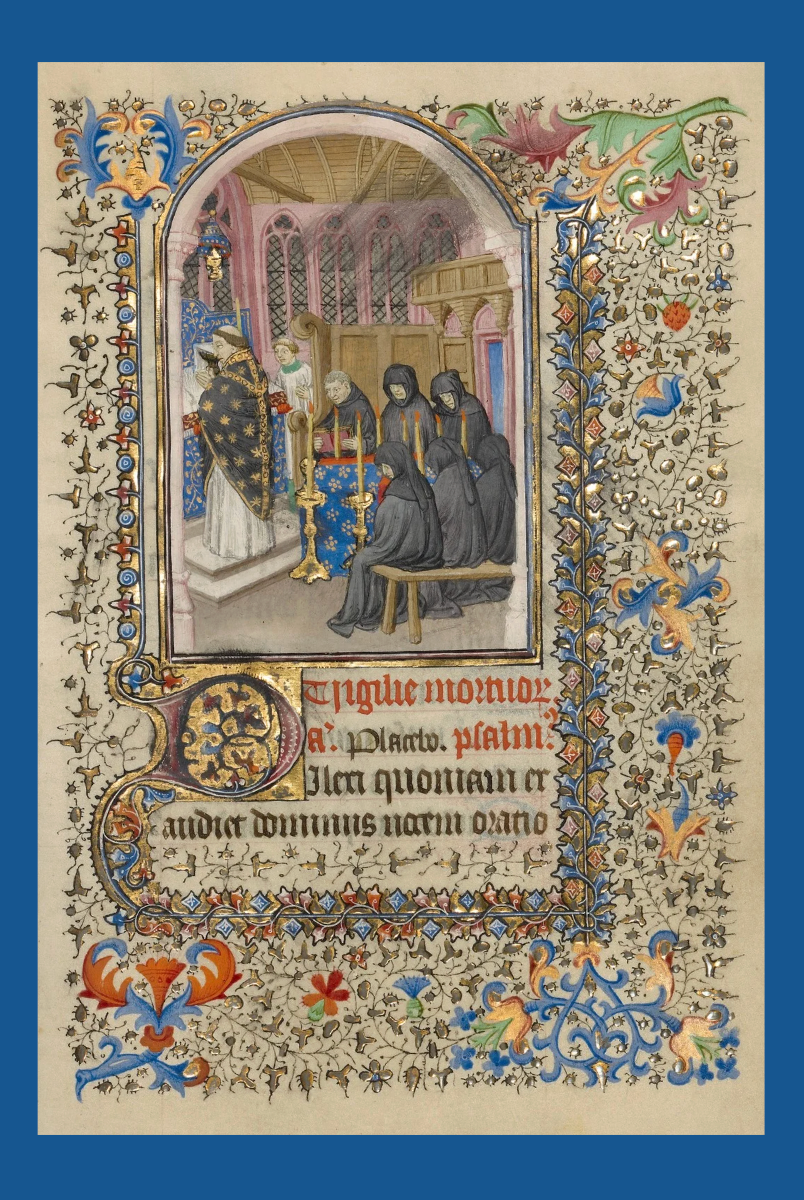 Vigilie mortuoꝝ.
a͛. Placebo. psalm͛.
DIlexi quoniam ex
audiet dominus uocem oratio